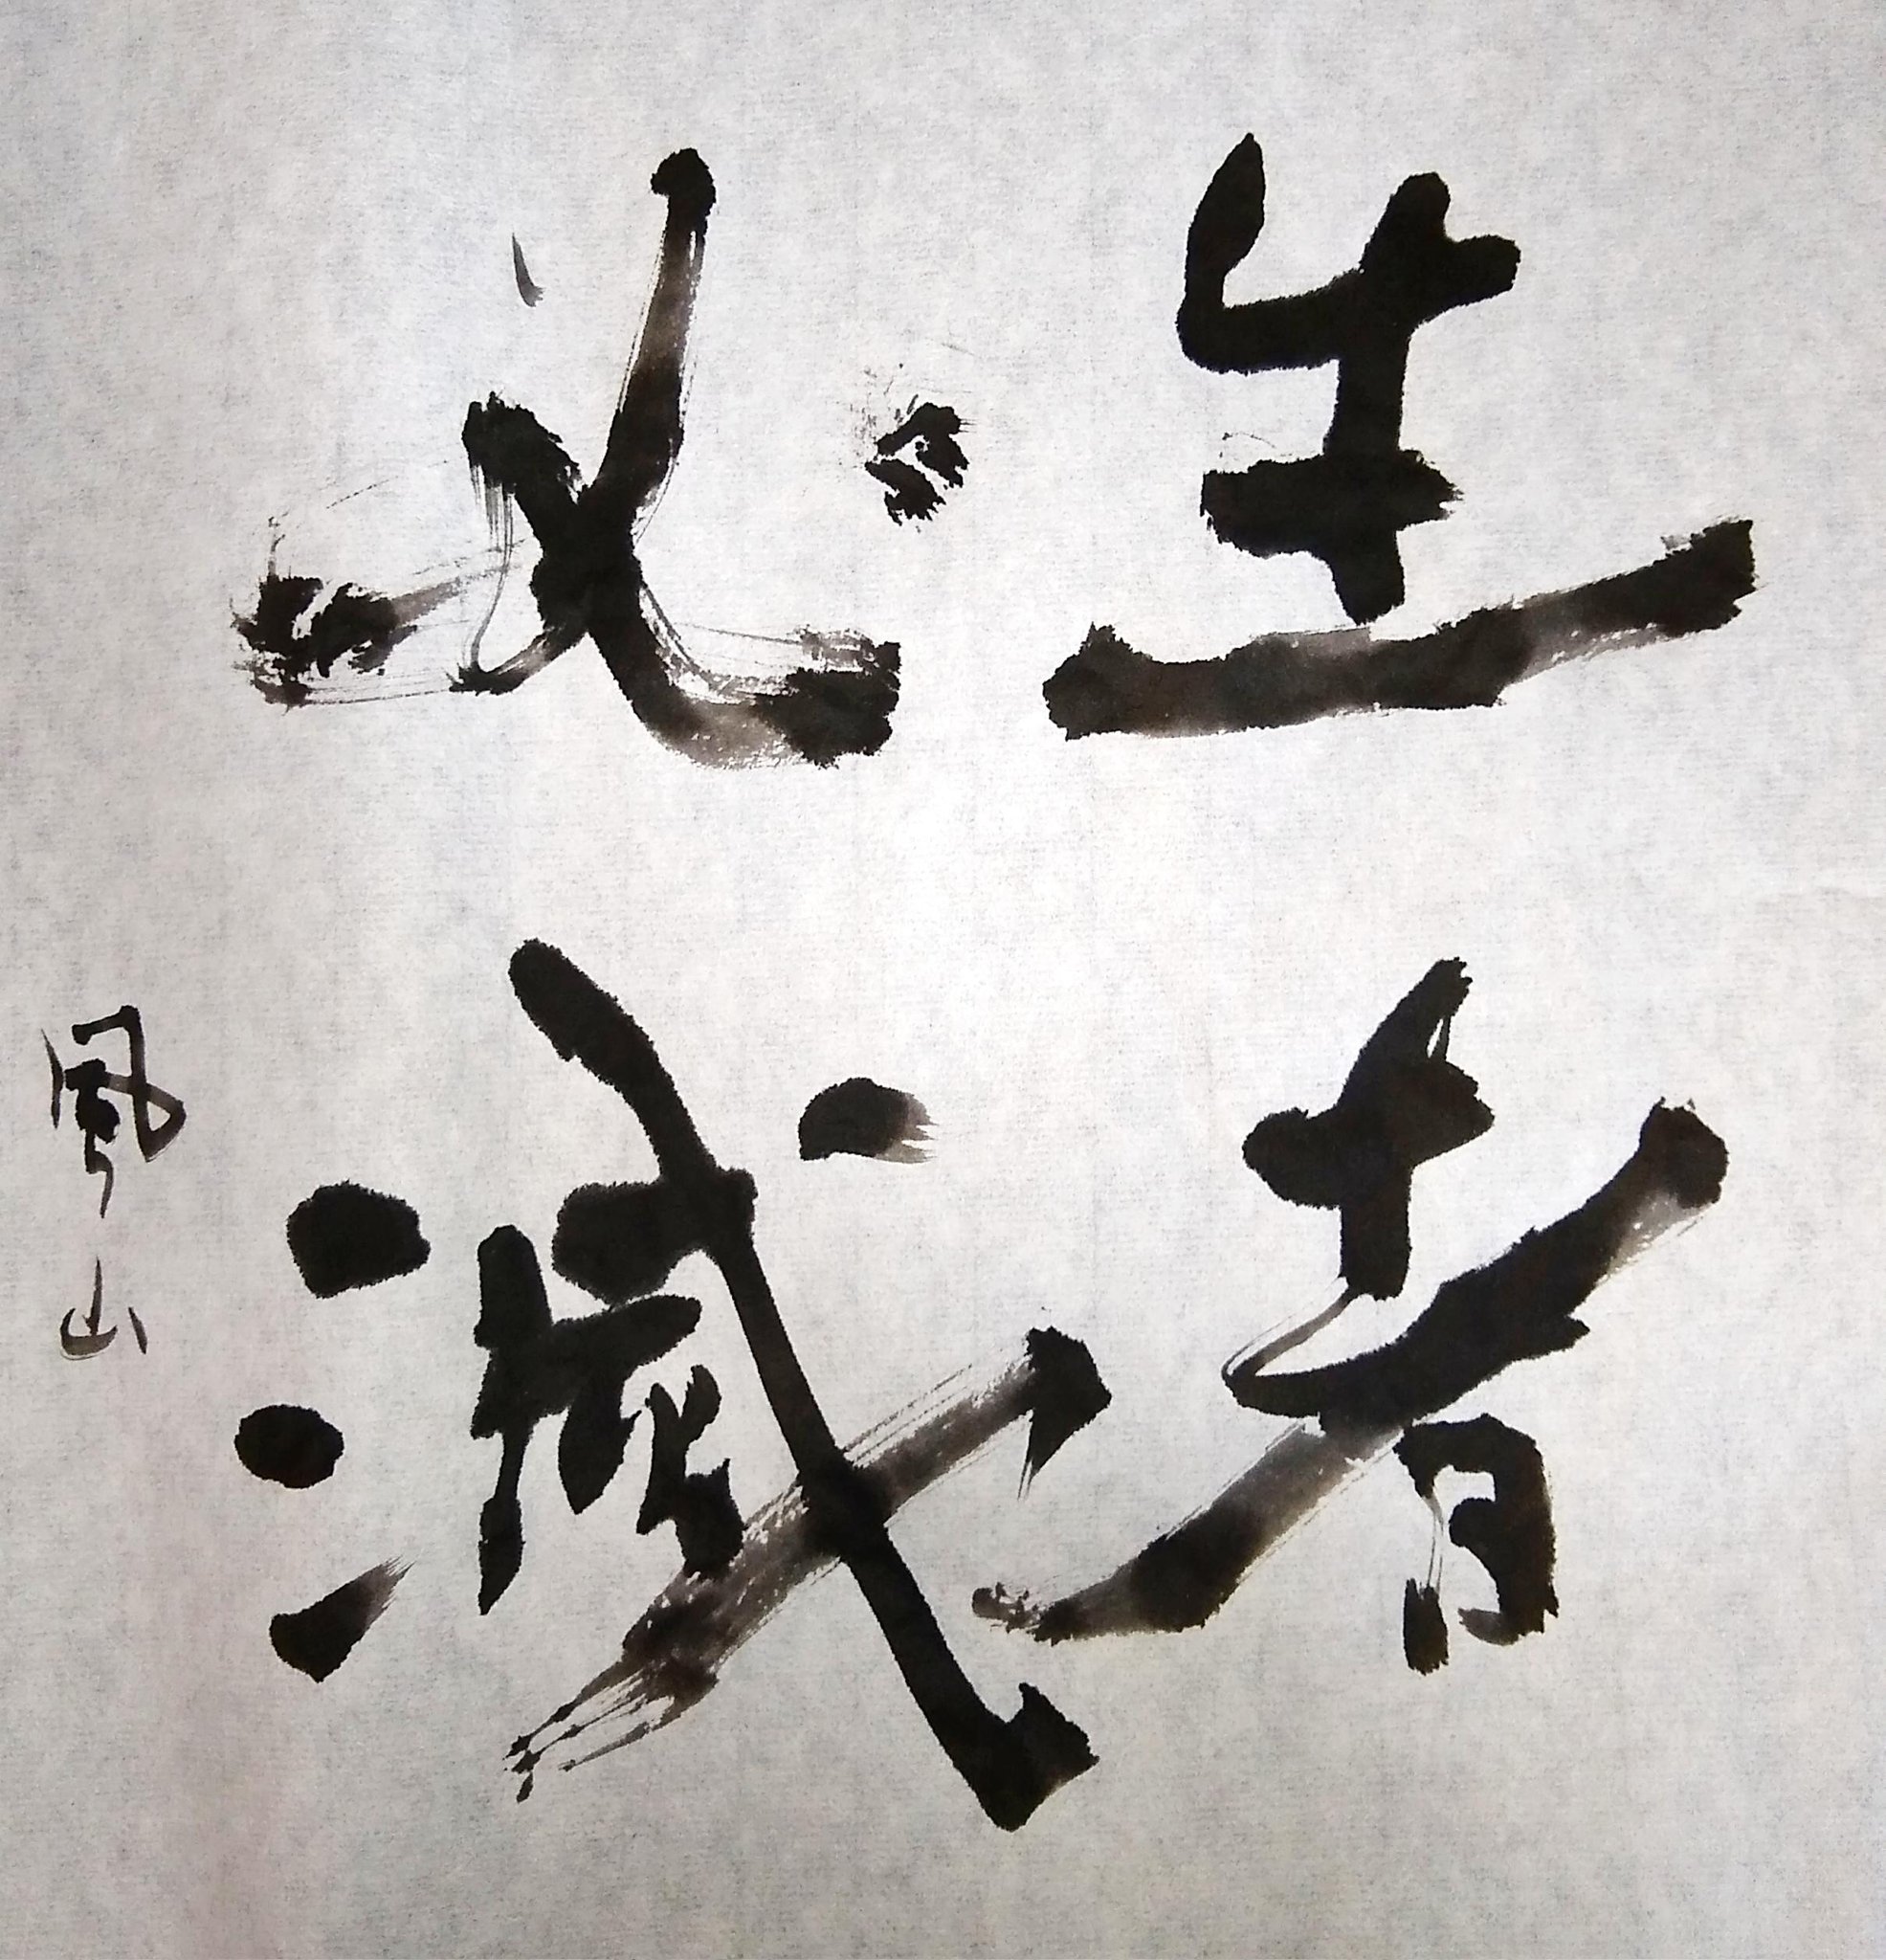 生者
必滅
風山